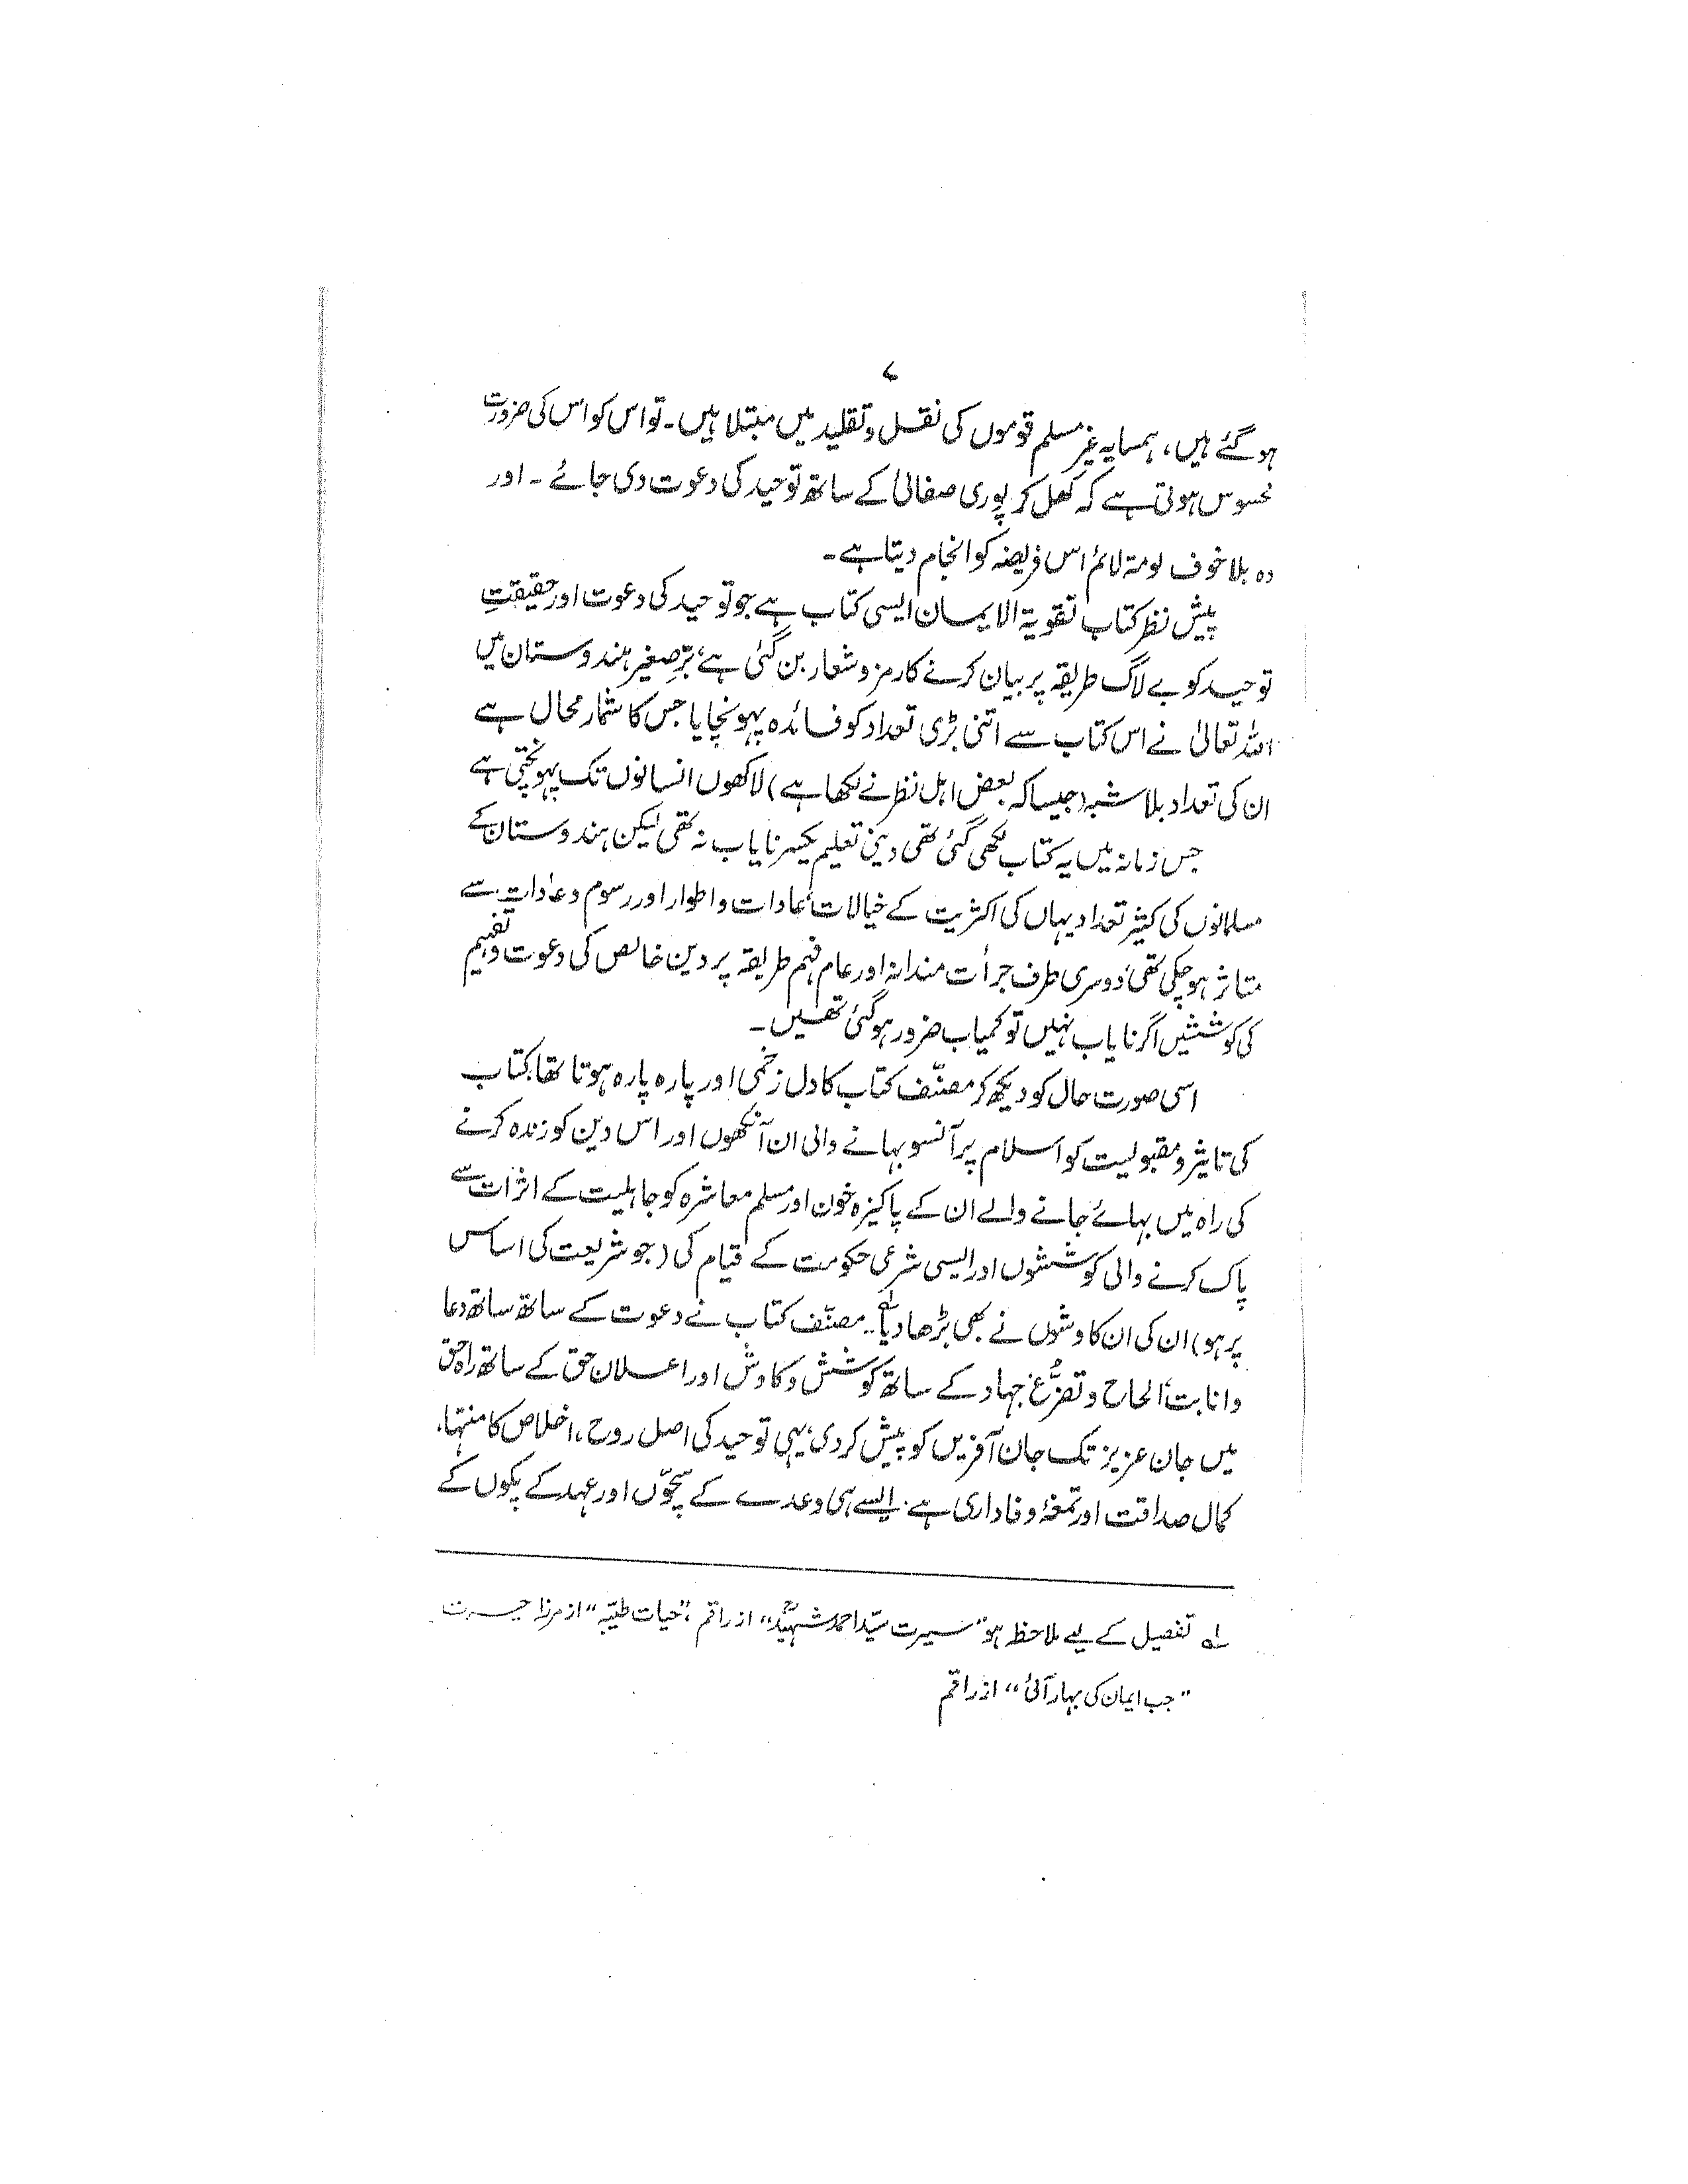 ۷
ہوگئے ہیں، ہمسایہ غیر مسلم قوموں کی نقل و تقلید میں مبتلا ہیں۔ تو اس کو اس کی ضرورت
محسوس ہوتی ہے کہ کھل کر پوری صفائی کے ساتھ توحید کی دعوت دی جائے۔ اور
وہ بلا خوف لومۃ لائم اس فریضہ کو انجام دیتا ہے۔
پیش نظر کتاب تقویۃ الایمان ایسی کتاب ہے جو توحید کی دعوت اور حقیقتِ
توحید کو بے لاگ طریقہ پر بیان کرنے کا رمز و شعار بن گئی ہے، برِّصغیر ہندوستان میں
اللہ تعالیٰ نے اس کتاب سے اتنی بڑی تعداد کو فائدہ پہونچایا جس کا شمار محال ہے
ان کی تعداد بلا شبہ (جیسا کہ بعض اہل نظر نے لکھا ہے) لاکھوں انسانوں تک پہونچتی ہے
جس زمانہ میں یہ کتاب لکھی گئی تھی دینی تعلیم یکسر نایاب نہ تھی لیکن ہندوستان کے
مسلمانوں کی کثیر تعداد یہاں کی اکثریت کے خیالات، عادات و اطوار اور رسوم و عادات سے
متاثر ہو چکی تھی، دوسری طرف جرأت مندانہ اور عام فہم طریقہ پر دین خالص کی دعوت و تفہیم
کی کوششیں اگر نایاب نہیں تو کمیاب ضرور ہو گئی تھیں۔
اسی صورت حال کو دیکھ کر مصنّف کتاب کا دل زخمی اور پارہ پارہ ہوتا تھا، کتاب
کی تاثیر و مقبولیت کو اسلام پر آنسو بہانے والی ان آنکھوں اور اس دین کو زندہ کرنے
کی راہ میں بہائے جانے والے ان کے پاکیزہ خون اور مسلم معاشرہ کو جاہلیت کے اثرات سے
پاک کرنے والی کوششوں اور ایسی شرعی حکومت کے قیام کی (جو شریعت کی اساس
پر ہو) ان کی ان کاوشوں نے بھی بڑھا دیا۔ مصنّف کتاب نے دعوت کے ساتھ ساتھ دعا
و انابت، الحاح و تضرُّع، جہاد کے ساتھ کوشش و کاوش اور اعلان حق کے ساتھ راہ حق
میں جان عزیز تک جان آفریں کو پیش کر دی، یہی توحید کی اصل روح، اخلاص کا منتہا،
کمال صداقت اور تمغۂ وفاداری ہے۔ ایسے ہی وعدے کے سچّوں اور عہد کے پکوں کے
لہ تفصیل کے لیے ملاحظہ ہو "سیرت سیّد احمد شہیدؒ" از راقم، "حیات طیبّہ" از مرزا حیرت
"جب ایمان کی بہار آئی" از راقم